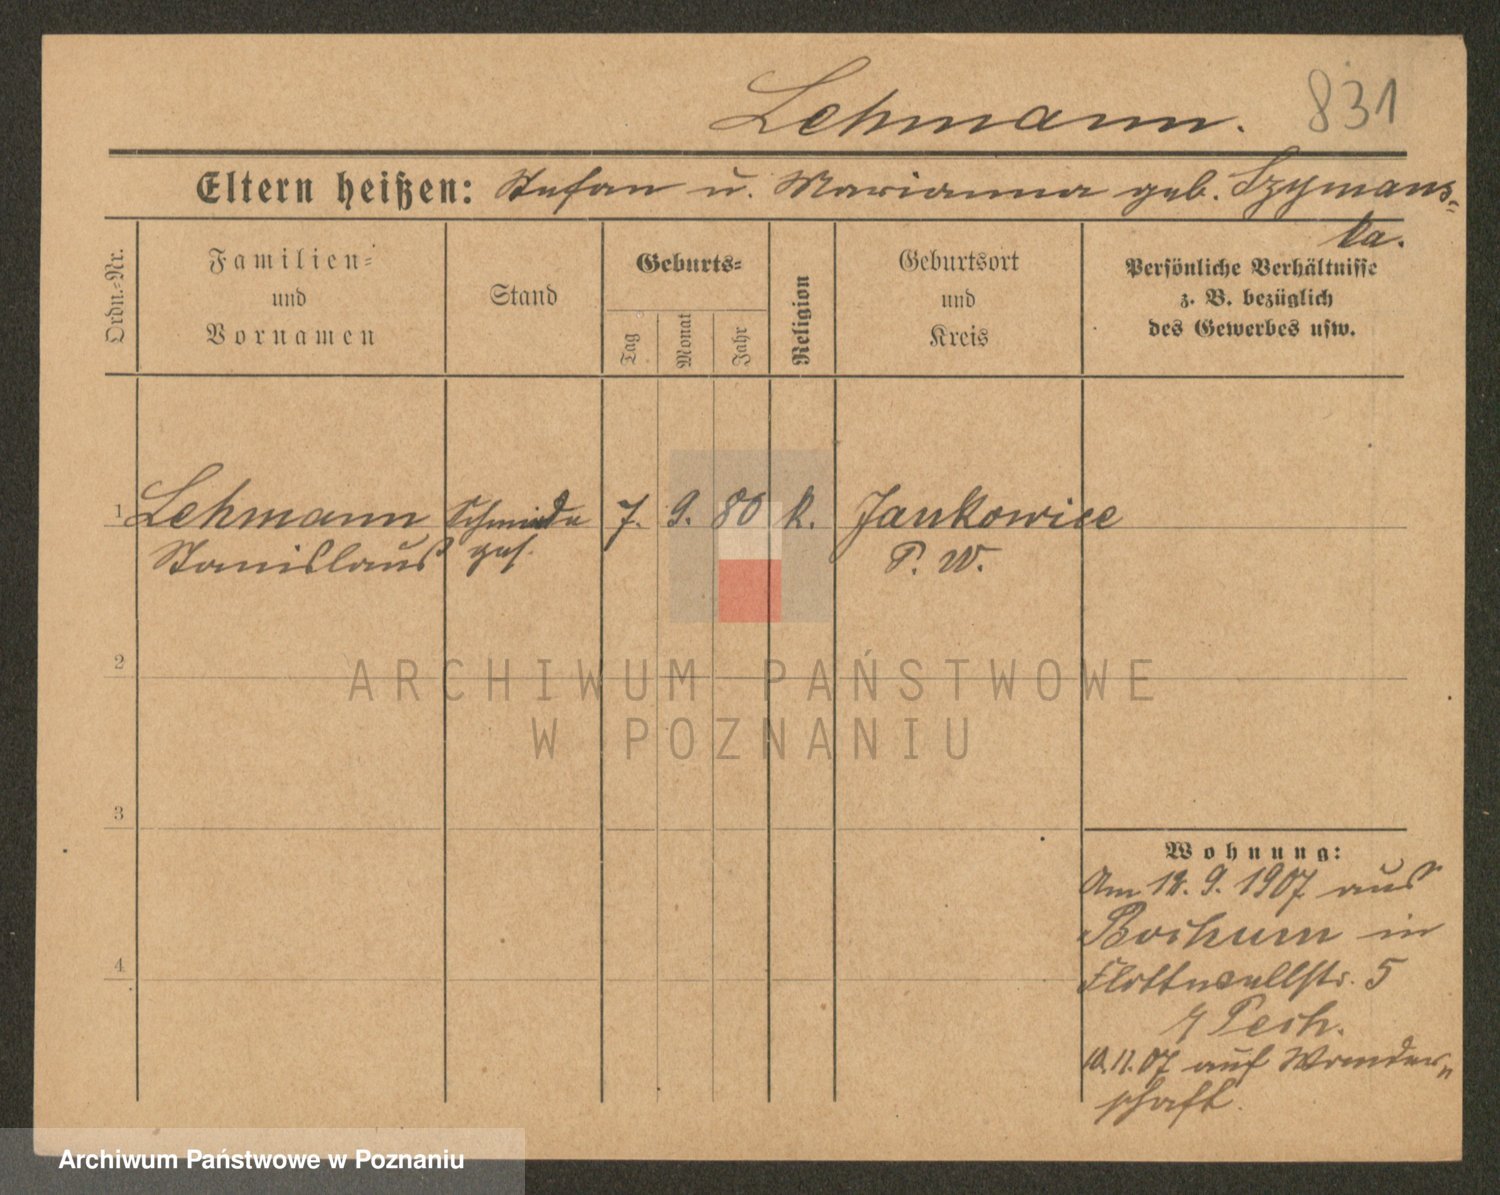 Lehmann. 831
Eltern heißen: Stefan u. Marianna geb. Szymans-
ka.
Ordn.-Nr.
Familien-
und
Vornamen
Stand
Geburts-
Tag
Monat
Jahr
Religion
Geburtsort
und
Kreis
Persönliche Verhältnisse
z. B. bezüglich
des Gewerbes usw.
1 Lehmann Schmiede 7. 9. 80 k. Jankowice
Stanislaus ges. P. W.
2
ARCHIWUM PAŃSTWOWE
W POZNANIU
3
Wohnung:
Am 12. 9. 1907 aus
Bochum in
4
Flottwellstr. 5
Pech.
10.11.07 auf Wander-
schaft.
Archiwum Państwowe w Poznaniu